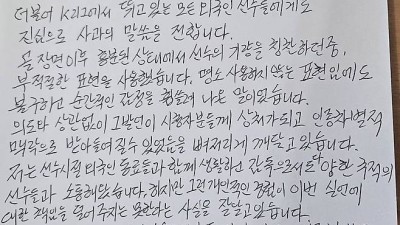 더불어 K리그에서 뛰고 있는 모든 외국인 선수들에게도
진심으로 사과의 말씀을 전합니다.
골 장면 이후 흥분된 상태에서 선수의 기량을 칭찬하던 중,
부적절한 표현을 사용했습니다. 평소 사용하지 않는 표현임에도
불구하고 순간적인 감정에 휩쓸려 나온 말이었습니다.
의도와 상관없이 그 발언이 시청자분들께 상처가 되고 인종차별적
맥락으로 받아들여질 수 있었음을 뼈저리게 깨닫고 있습니다.
저는 선수시절 외국인 동료들과 함께 생활하고 감독으로서도 다양한 국적의
선수들과 소통해왔습니다. 하지만 그런 개인적인 경험이 이번 실언에
대한 책임을 덜어주지는 못한다는 사실을 잘 알고 있습니다.